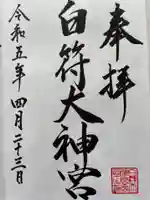 奉拝
白符大神宮
令和五年四月二十三日